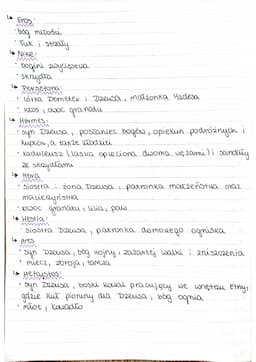 ↳ Eros:
· bóg miłości
· łuk i strzały
↳ Nike:
· bogini zwycięstwa
· skrzydła
↳ Persefona:
· córka Demeter i Dzeusa, małżonka Hadesa
· kłos, owoc granatu
↳ Hermes:
· syn Dzeusa, posłaniec bogów, opiekun podróżnych i
kupców, a także złodziei
· kaduceusz (laska opleciona dwoma wężami) i sandały
ze skrzydłami
↳ Hera
· siostra i żona Dzeusa, patronka małżeństwa oraz
macierzyństwa
· owoc granatu, lilia, paw
↳ Hestia:
· siostra Dzeusa, patronka domowego ogniska
↳ Ares
· syn Dzeusa, bóg wojny, zażartej walki i zniszczenia
· miecz, zbroja, tarcza
↳ Hefajstos:
· syn Dzeusa, boski kowal pracujący we wnętrzu Etny,
gdzie kuł pioruny dla Dzeusa, bóg ognia
· młot, kowadło